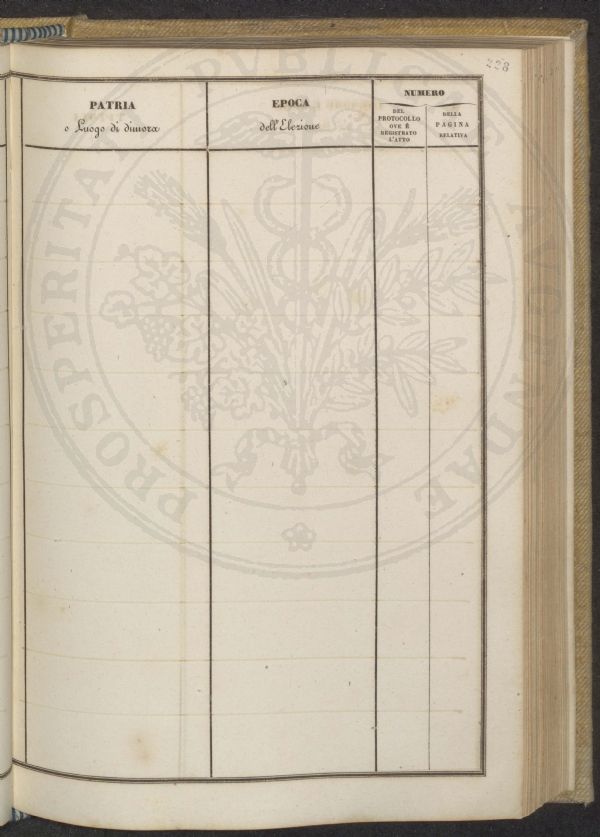 228
PATRIA
o Luogo di dimora
EPOCA
dell'Elezione
NUMERO
DEL
PROTOCOLLO
OVE È
REGISTRATO
L'ATTO
DELLA
PAGINA
RELATIVA
PROSPERITATI PUBLICAE AUGENDAE